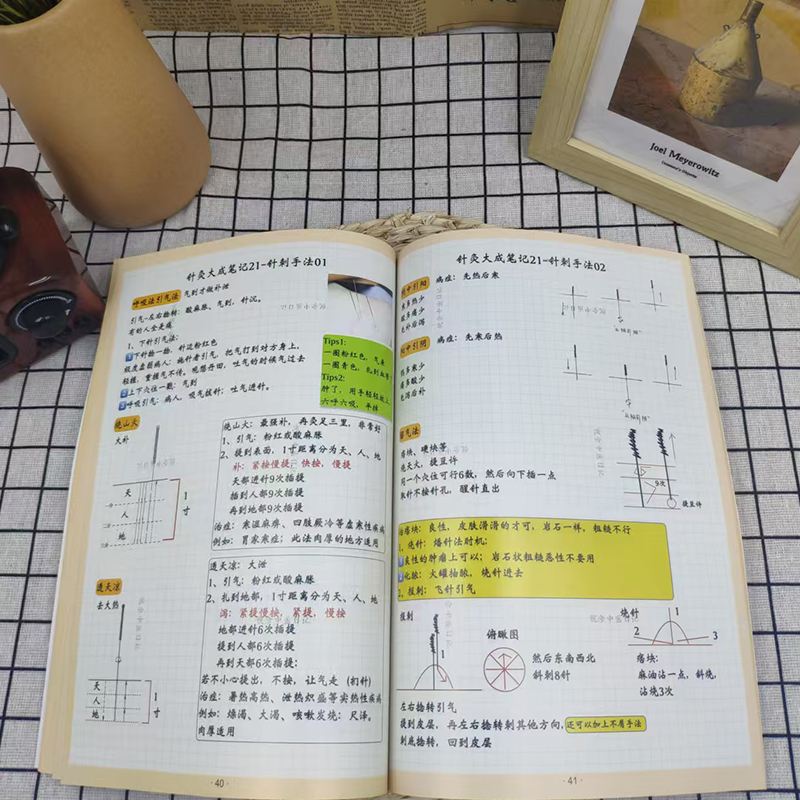 Joel Meyerowitz
针灸大成笔记21-针刺手法01
呼吸法引气法
气到才做补泄
引气-左右捻转: 酸麻胀、气到、针沉。
有的人全是痛
1、下针引气法:
1下针捻一捻, 针边粉红色
极度虚弱病人: 施针者引气, 把气打到对方身上,
轻揉, 重揉气不传。观想丹田, 吐气的时候气过去
2上下穴位一戳: 气到
3呼吸引气: 病人, 吸气拔针; 吐气进针。
Tips1:
一圈粉红色, 气来
一圈青色, 扎到血管
Tips2:
肿了, 用手轻轻按上
六呼六吸, 平掉
烧山火
大补
天
人
地
1
寸
烧山火: 最强补, 再灸足三里, 非常好
1、引气: 粉红或酸麻胀
2、提到表面, 1寸距离分为天、人、地
补: 紧按慢提, 快按, 慢提
天部进针9次插提
插到人部9次插提
再到地部9次插提
治症: 寒湿麻痹、四肢厥冷等虚寒性疾病
例如: 胃家寒症; 此法肉厚的地方适用
透天凉
去大热
天
人
地
1
寸
透天凉: 大泄
1、引气: 粉红或酸麻胀
2、扎到地部, 1寸距离分为天、人、地
泻: 紧提慢按, 紧提, 慢按
地部进针6次插提
提到人部6次插提
再到天部6次插提:
若不小心提出, 不按, 让气走 (扪针)
治症: 暑热高热、泄热炽盛等实热性疾病
例如: 燥渴、大渴、咳嗽发烧: 尺泽。
肉厚适用
悦余中医日记
· 40 ·
针灸大成笔记21-针刺手法02
中引阳
病症: 先热后寒
多热少
酸多痛少
先补后泻
中引阴
病症: 先寒后热
热多寒少
痛多酸少
先泻后补
气法
痞块、硬块等
烧天火, 提豆许
同一个穴位可行6数, 然后向下插一点
取针不按针孔, 腥针直出
9次
提豆许
治痞块: 良性, 皮肤滑滑的才可, 岩石一样, 粗糙不行
1、烧针: 燔针法肘机:
1良性的肿瘤上可以; 岩石状粗糙恶性不要用
2化脓: 火罐抽脓, 烧针进去
2、报刺: 飞针引气
报刺
1
俯瞰图
然后东南西北
斜刺8针
烧针
1
2
3
痞块:
麻油沾一点, 斜烧,
沾烧3次
左右捻转引气
提到皮层, 再左右捻转刺其他方向,
还可以加上不盾手法
刺底捻转, 回到皮层
· 41 ·